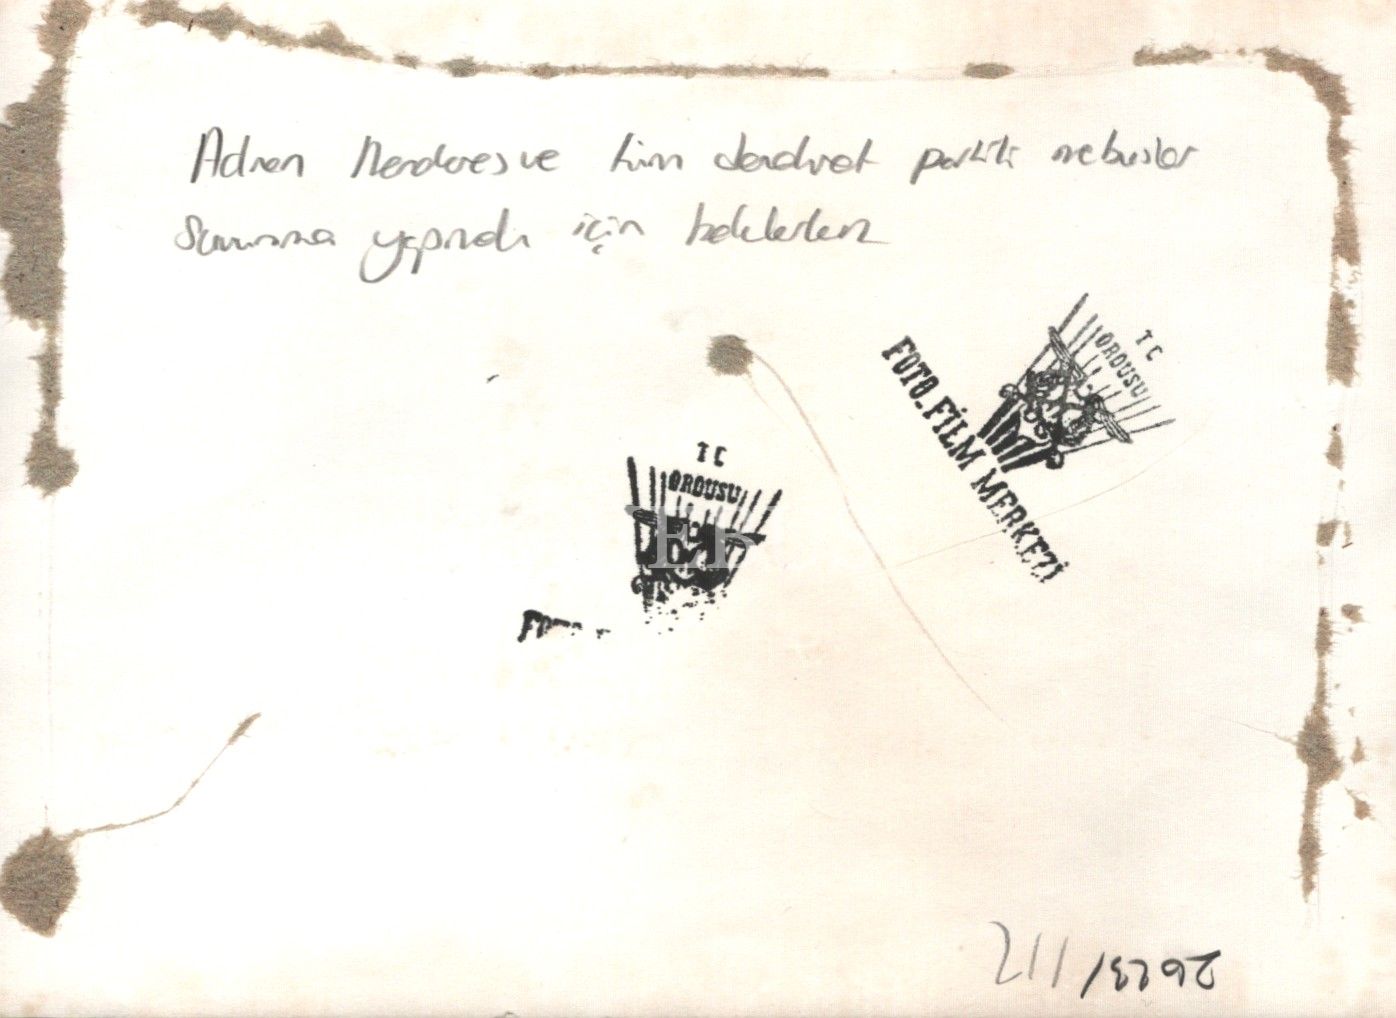 Adnan Menderes ve tüm demokrat partili mebuslar
Savunma yapmak için beklerken
T C
ORDUSU
FOTO.FİLM MERKEZİ
T C
ORDUSU
FOTO
211